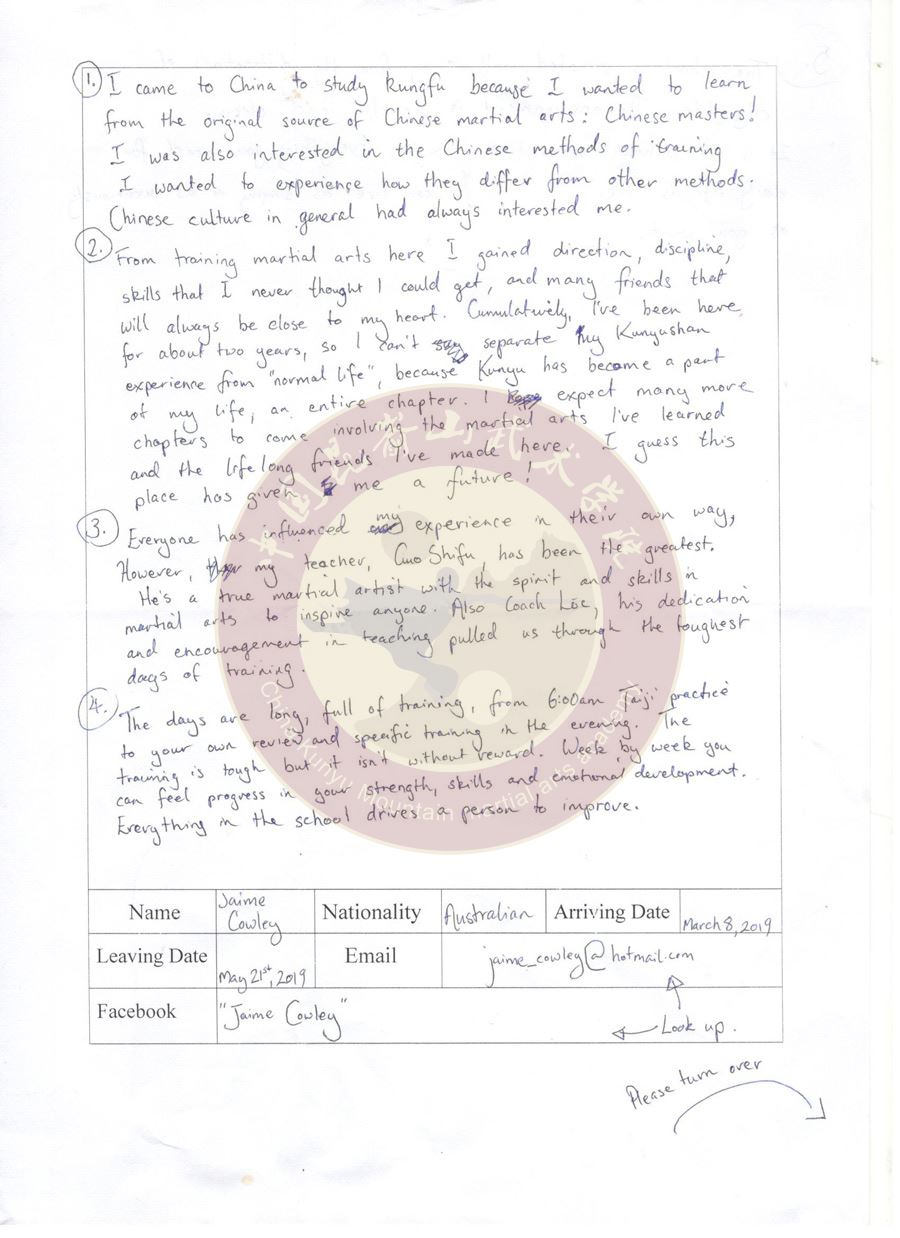 1. I came to China to study Kungfu because I wanted to learn
from the original source of Chinese martial arts: Chinese masters!
I was also interested in the Chinese methods of training
I wanted to experience how they differ from other methods.
Chinese culture in general had always interested me.
2. From training martial arts here I gained direction, discipline,
skills that I never thought I could get, and many friends that
will always be close to my heart. Cumulatively, I've been here
for about two years, so I can't separate my Kunyushan
experience from "normal life", because Kunyu has become a part
of my life, an entire chapter. I expect many more
chapters to come involving the martial arts I've learned
and the lifelong friends I've made here. I guess this
place has given me a future!
3. Everyone has influenced my experience in their own way,
However, my teacher, Guo Shifu, has been the greatest.
He's a true martial artist with the spirit and skills in
martial arts to inspire anyone. Also Coach Loc, his dedication
and encouragement in teaching pulled us through the toughest
days of training.
4. The days are long, full of training, from 6:00am Taiji practice
to your own review and specific training in the evening. The
training is tough but it isn't without reward. Week by week you
can feel progress in your strength, skills and emotional development.
Everything in the school drives a person to improve.
China Kunyu Mountain martial arts academy
Name Jaime Cowley Nationality Australian Arriving Date March 8, 2019
Leaving Date May 21st, 2019 Email jaime_cowley@hotmail.com
Facebook "Jaime Cowley" Look up.
Please turn over